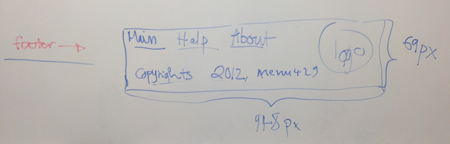 footer
Main Help About
logo
Copyrights 2012, menu429
69px
948px